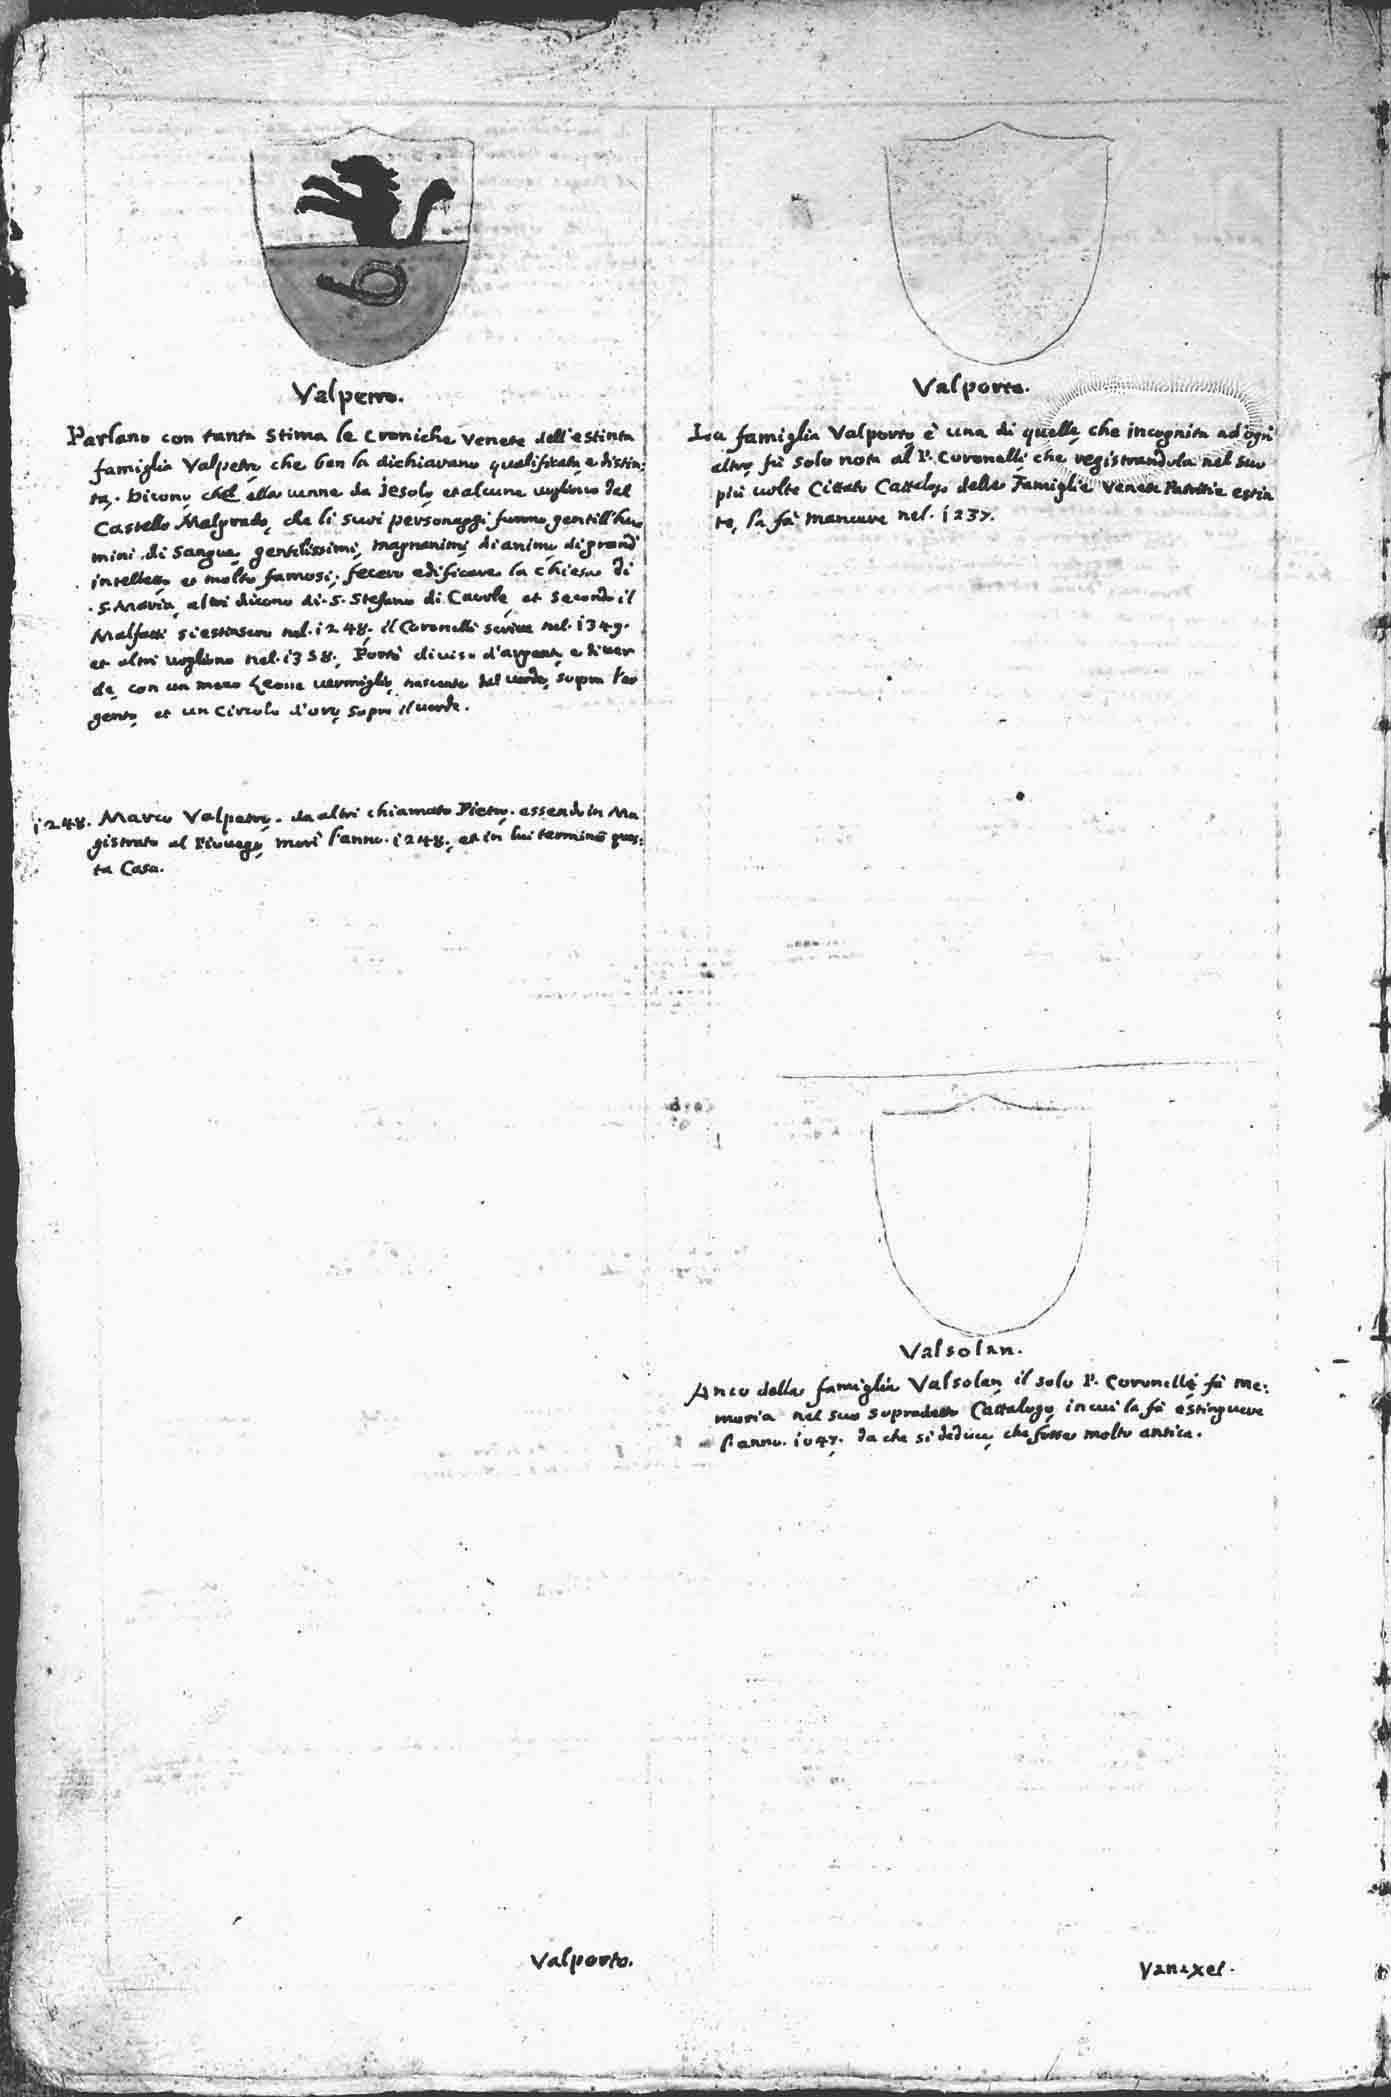 Valpetro.
Parlano con tanta stima le Croniche Venete dell'estinta
famiglia Valpetro, che ben la dichiarano qualificata, e distin:
ta. Dicono, chel ella venne da Jesolo, et alcune vogliono dal
Castello Malprado, che li suoi personaggi furono gentill'huo
mini di sangue, gentilissimi, magnanimi di animo di grand'
intelletto et molto famosi; fecero edificare la Chiesa di
S. Maria, altri dicono di S. Stefano di Caorle, et secondo il
Malfatti si estinsero nel. 1248. il Coronelli scrive nel. 1349.
et altri vogliono nel. 1358. Portò diviso d'argento, e di ver
de, con un mezo Leone vermiglio, nascente dal verde, sopra l'ar
gento, et un Circolo d'oro, sopra il verde.
1248. Marco Valpetro. da altri chiamato Pietro. essendo in Ma
gistrato al Piovego, morì l'anno. 1248. et in lui terminò ques:
ta Casa.
Valporto.
Valporto.
La famiglia Valporto, è una di quelle, che incognita ad ogni
altro, fù solo nota al P. Coronelli, che registrandola nel suo
più volte Cittato Cattalogo delle Famiglie Venete Patritie estin
te, la fà mancare nel. 1237.
Valsolan.
Anco della famiglia Valsolan, il solo P. Coronelli, fà me:
moria nel suo sopradetto Cattalogo, in cui la fà estinguere
l'anno. 1047. da che si deduce, che fosse molto antica.
Vanaxel.